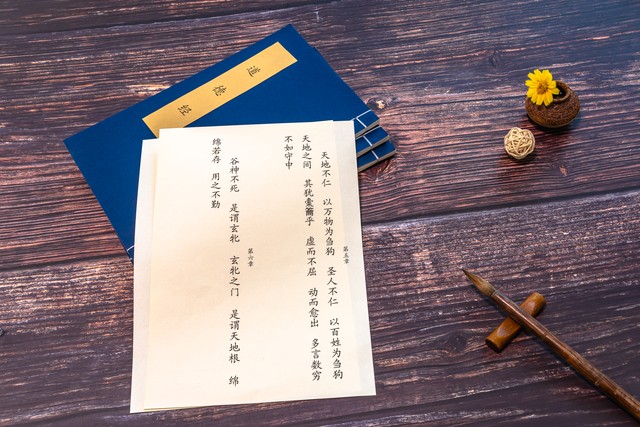 道德经
第五章
天地不仁 以万物为刍狗 圣人不仁 以百姓为刍狗
天地之间 其犹橐龠乎 虚而不屈 动而愈出 多言数穷
不如守中
第六章
谷神不死 是谓玄牝 玄牝之门 是谓天地根 绵
绵若存 用之不勤